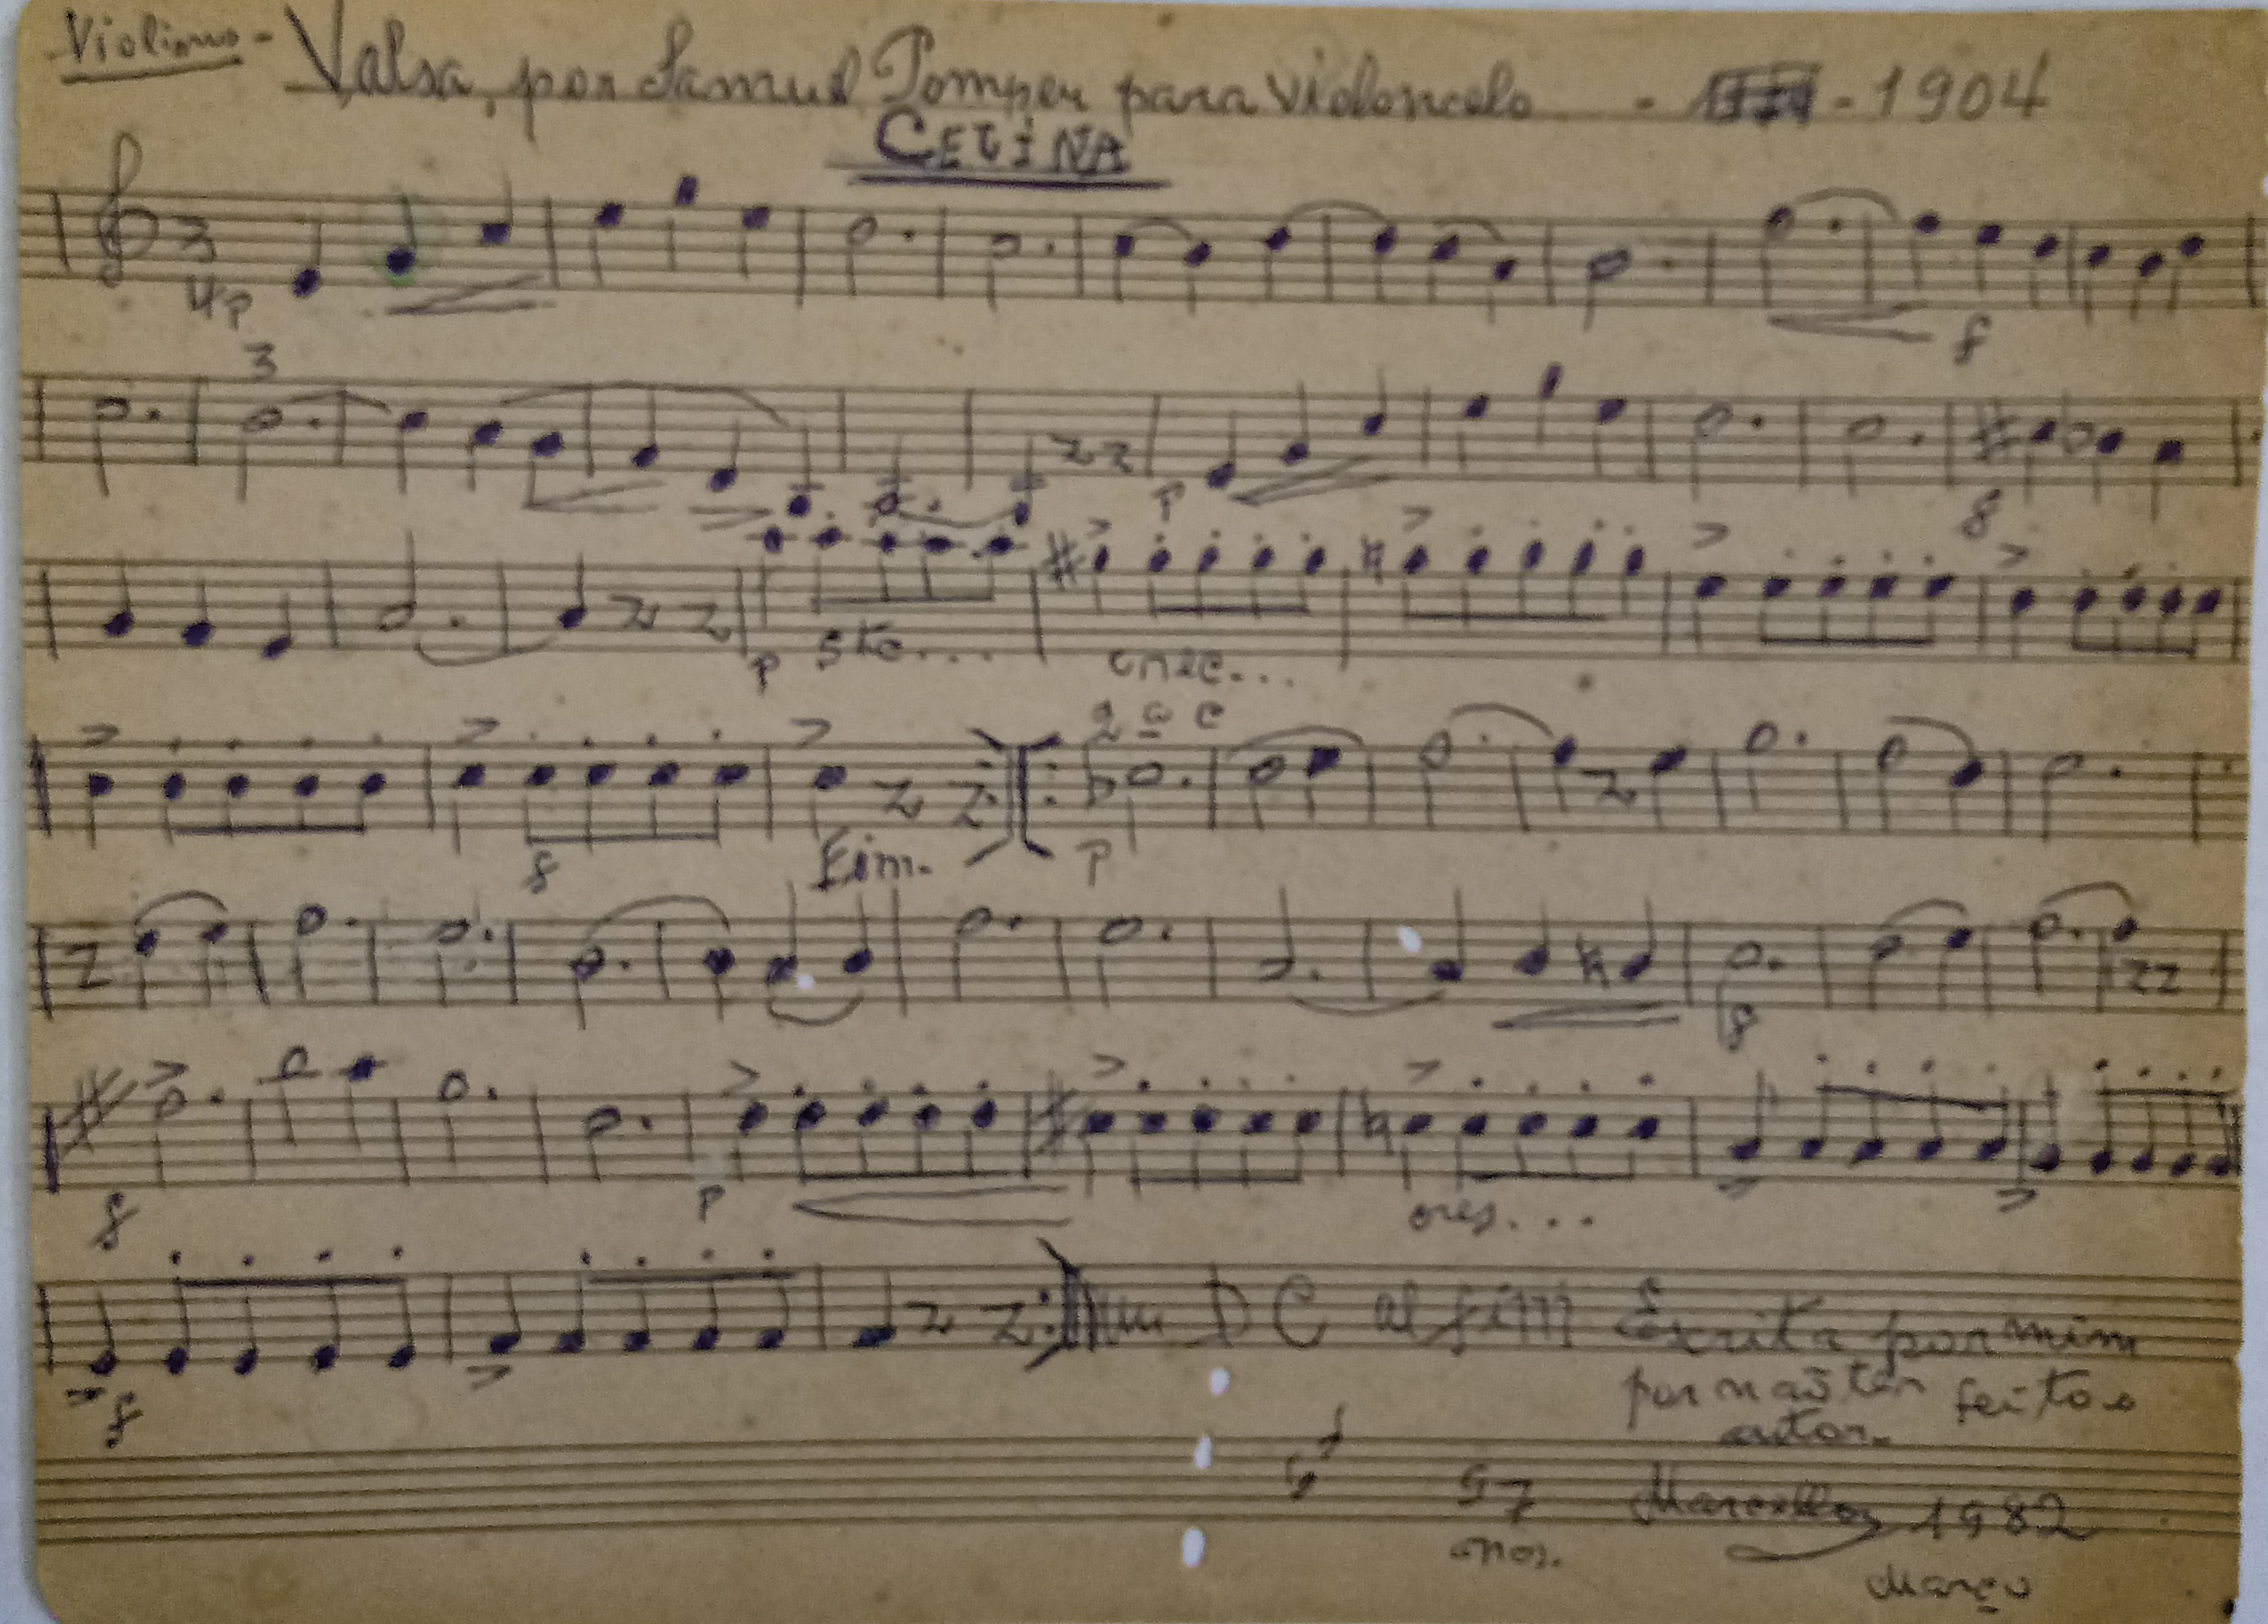 Violino - Valsa, por Samuel Pompeu para violoncelo - - 1904
CELINA
3
4 p
f
3
p
f
p stc... cresc...
2ª C
f Fim. p
f
f p cres...
D C al fim Escrita por mim
por não ter feito o
autor.
f
97 Marcellos 1982
anos.
Março